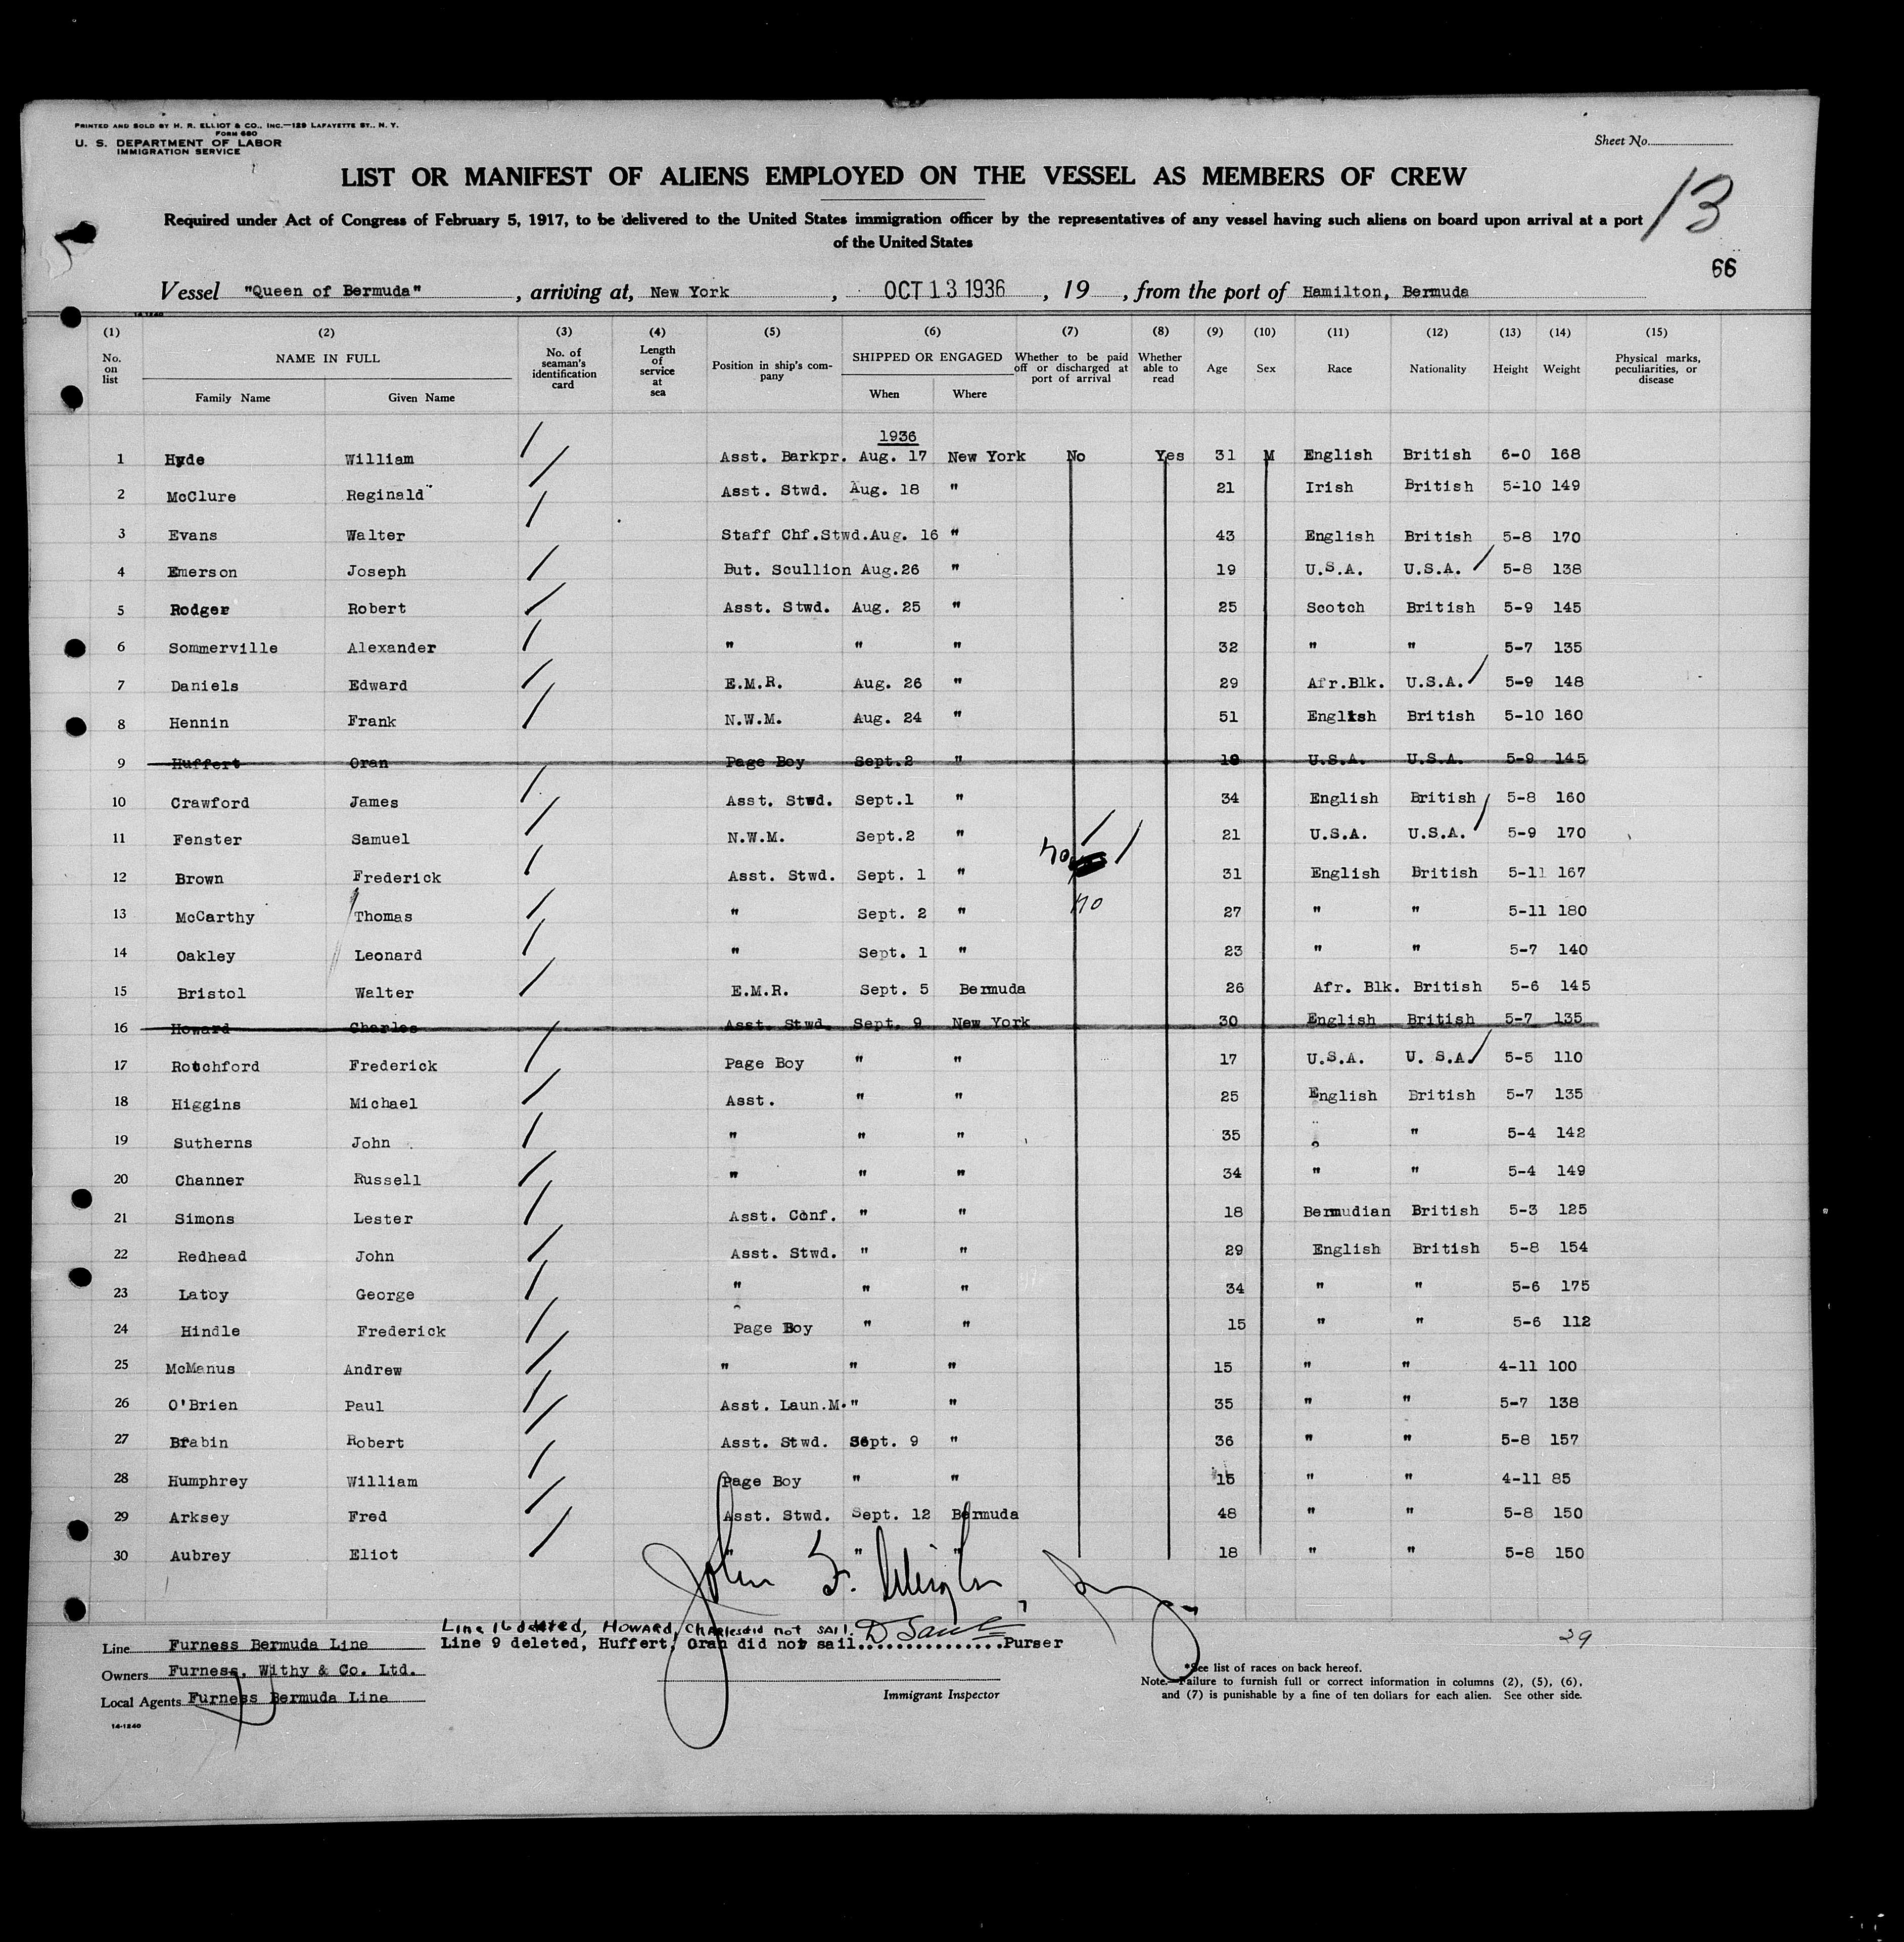 PRINTED AND SOLD BY H. R. ELLIOT & CO., INC.—129 LAFAYETTE ST., N. Y.
FORM 680
U. S. DEPARTMENT OF LABOR
IMMIGRATION SERVICE
Sheet No.
LIST OR MANIFEST OF ALIENS EMPLOYED ON THE VESSEL AS MEMBERS OF CREW
13
Required under Act of Congress of February 5, 1917, to be delivered to the United States immigration officer by the representatives of any vessel having such aliens on board upon arrival at a port
of the United States
66
Vessel "Queen of Bermuda", arriving at, New York, OCT 13 1936, 19, from the port of Hamilton, Bermuda
14-1240
(1) (2) (3) (4) (5) (6) (7) (8) (9) (10) (11) (12) (13) (14) (15)
No. on list NAME IN FULL Family Name Given Name No. of seaman's identification card Length of service at sea Position in ship's company SHIPPED OR ENGAGED When Where Whether to be paid off or discharged at port of arrival Whether able to read Age Sex Race Nationality Height Weight Physical marks, peculiarities, or disease
1936
1 Hyde William Asst. Barkpr. Aug. 17 New York No Yes 31 M English British 6-0 168
2 McClure Reginald Asst. Stwd. Aug. 18 " 21 Irish British 5-10 149
3 Evans Walter Staff Chf.Stwd. Aug. 16 " 43 English British 5-8 170
4 Emerson Joseph But. Scullion Aug.26 " 19 U.S.A. U.S.A. 5-8 138
5 Rodger Robert Asst. Stwd. Aug. 25 " 25 Scotch British 5-9 145
6 Sommerville Alexander " " " 32 " " 5-7 135
7 Daniels Edward E.M.R. Aug. 26 " 29 Afr.Blk. U.S.A. 5-9 148
8 Hennin Frank N.W.M. Aug. 24 " 51 English British 5-10 160
9 Huffert Oran Page Boy Sept.2 " U.S.A. U.S.A. 5-9 145
10 Crawford James Asst. Stwd. Sept.1 " 34 English British 5-8 160
11 Fenster Samuel N.W.M. Sept.2 " 21 U.S.A. U.S.A. 5-9 170
12 Brown Frederick Asst. Stwd. Sept. 1 " no 31 English British 5-11 167
13 McCarthy Thomas " Sept. 2 " no 27 " " 5-11 180
14 Oakley Leonard " Sept. 1 " 23 " " 5-7 140
15 Bristol Walter E.M.R. Sept. 5 Bermuda 26 Afr. Blk. British 5-6 145
16 Howard Charles Asst. Stwd. Sept. 9 New York 30 English British 5-7 135
17 Rotchford Frederick Page Boy " " 17 U.S.A. U. S.A. 5-5 110
18 Higgins Michael Asst. " " 25 English British 5-7 135
19 Sutherns John " " " 35 " 5-4 142
20 Channer Russell " " " 34 " " 5-4 149
21 Simons Lester Asst. Conf. " " 18 Bermudian British 5-3 125
22 Redhead John Asst. Stwd. " " 29 English British 5-8 154
23 Latoy George " " " 34 " " 5-6 175
24 Hindle Frederick Page Boy " " 15 " " 5-6 112
25 McManus Andrew " " " 15 " " 4-11 100
26 O'Brien Paul Asst. Laun.M. " " 35 " " 5-7 138
27 Brabin Robert Asst. Stwd. Sept. 9 " 36 " " 5-8 157
28 Humphrey William Page Boy " " 15 " " 4-11 85
29 Arksey Fred Asst. Stwd. Sept. 12 Bermuda 48 " " 5-8 150
30 Aubrey Eliot " " " 18 " " 5-8 150
John F.
Line 16 deleted, HOWARD, Charles did not SAIL.
Line 9 deleted, Huffert, Oran did not sail...............Purser
29
Line Furness Bermuda Line
Owners Furness, Withy & Co. Ltd.
Local Agents Furness Bermuda Line
Immigrant Inspector
*See list of races on back hereof.
Note.—Failure to furnish full or correct information in columns (2), (5), (6),
and (7) is punishable by a fine of ten dollars for each alien. See other side.
14-1240